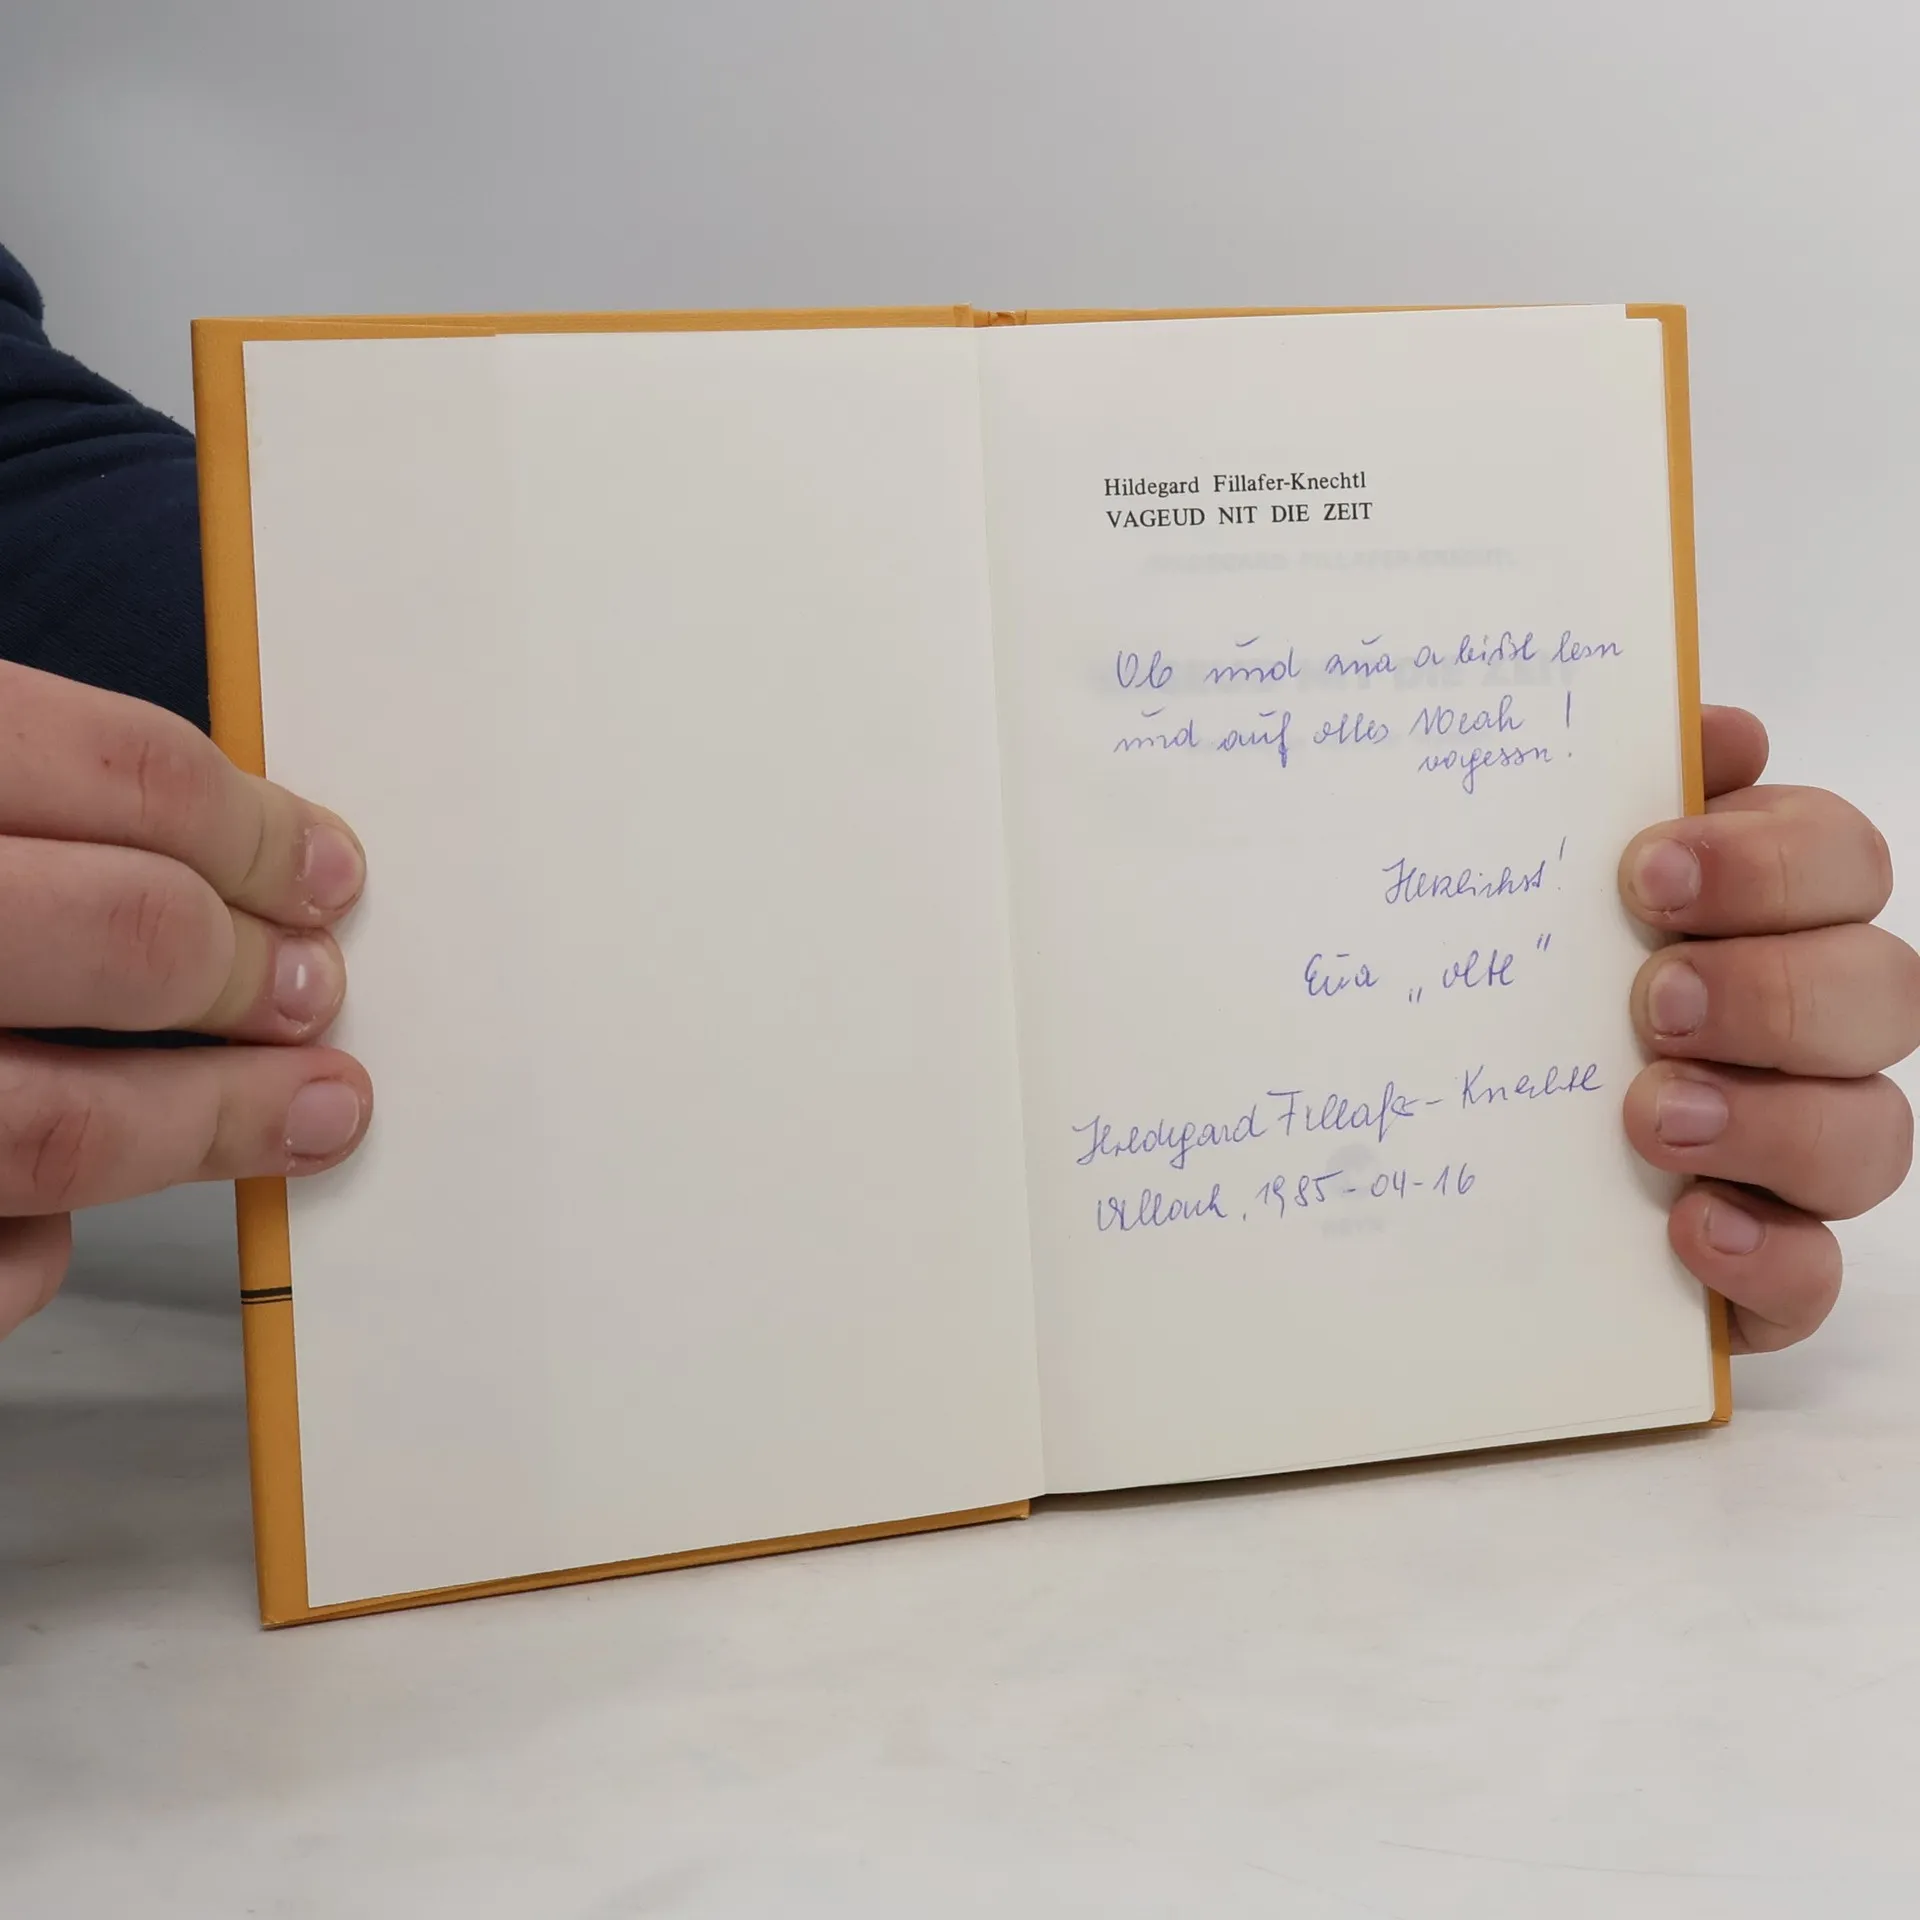 Hildegard Fillafer-Knechtl
VAGEUD NIT DIE ZEIT
Ob und zua a bißl lesn
und auf olles Weah
vagessn!
Herzlichst!
Eua „Olte"
Hildegard Fillafer-Knechtl
Villach, 1985-04-16